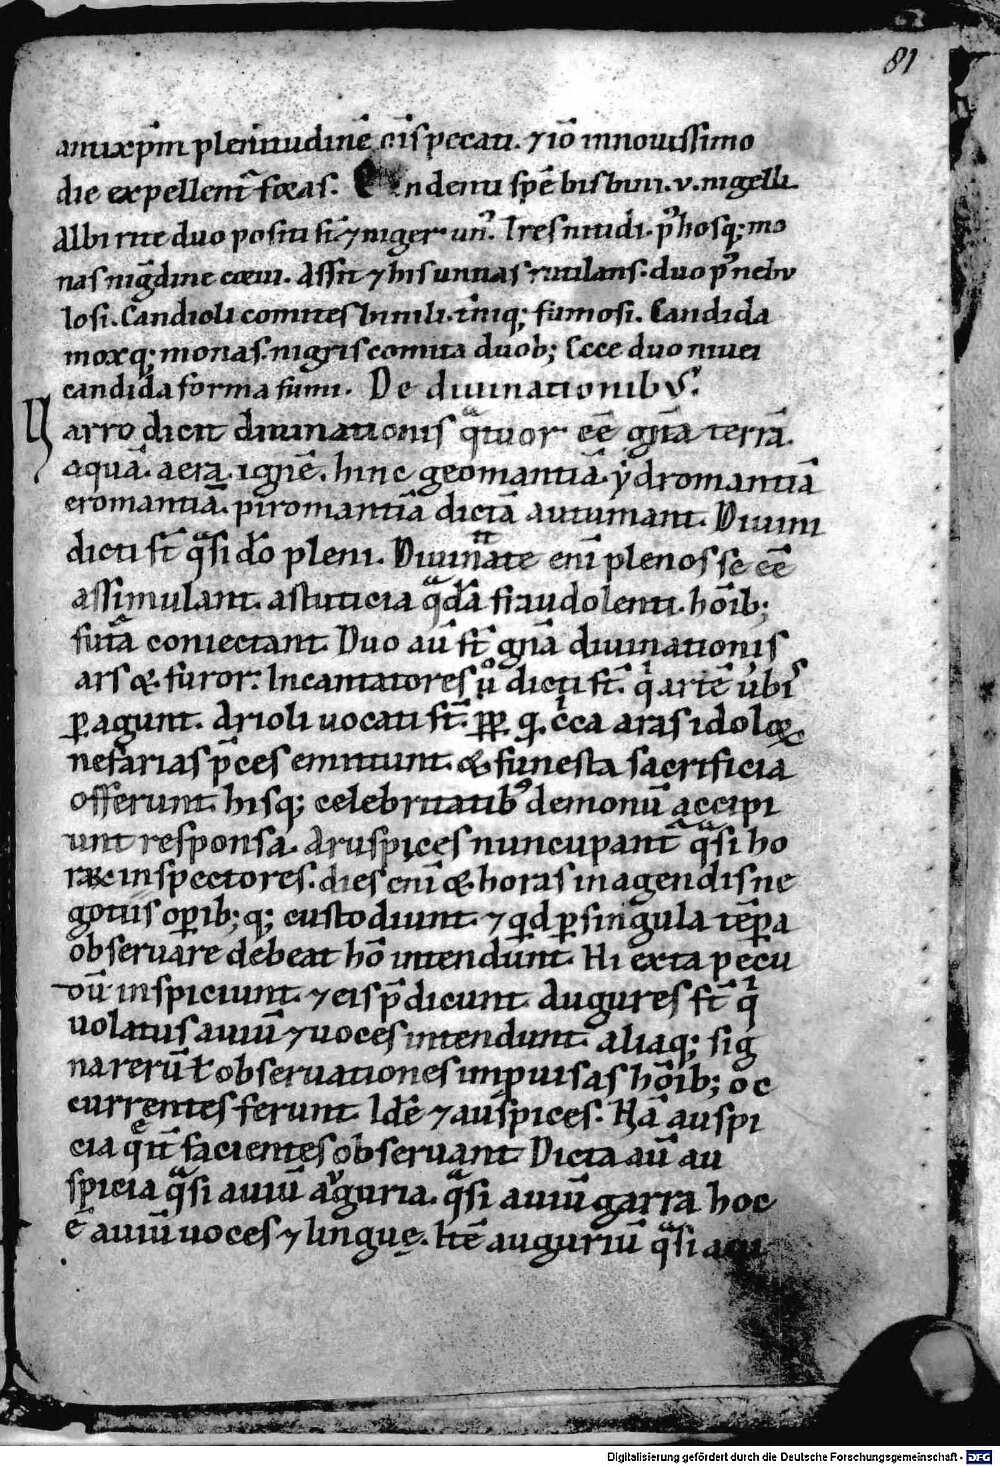 81
antixp̄m plenitudinē oīs peccati. ⁊ iō innouissimo
die expellent᷑ foras. Candenti spē bis bini. v. nigelli
Albi rite duo positi st̄ ⁊ niger un᷒. Tres nitidi. p᷒t hosq; mo
nas nig̃dine ceui. Assit ⁊ his unitas rutilans. duo p᷒t nebu
losi. Candioli comites bini li. t̄niq; fumosi. Candida
moxq; monas. nigris comita duob; Ecce duo niuei
candida forma fumi. De diuinationibus.
Varro dicit diuinationis qͣtuor eē gn̄a terrā.
aquā. aera. ignē. hinc geomantiā. ydromantiā
eromantiā. piromantiā dictā autumant. Diuini
dicti st̄ qͣsi dō pleni. Diuinitate enī plenos se eē
assimulant. astuticia qͣdā fraudolenti. hōib;
futͣa coniectant. Duo aū st̄ gn̄a diuinationis
ars & furor. Incantatores ů dicti st̄. qͥ artē ůbis
ꝑagunt. Arioli uocati st̄. ꝓp̄ q. c̄ca aras idoloꝝ
nefarias p̄ces emittunt. & funesta sacrificia
offerunt. hisq; celebritatib᷒ demonū accipi
unt responsa. Aruspices nuncupant᷑ qͣsi ho
raꝝ inspectores. dies enī & horas in agendis ne
gotiis opib; q; custodiunt. ⁊ qd ꝑ singula tēpa
obseruare debeat hō intendunt. Hi exta pecu
dū inspiciunt. ⁊ eis p̄dicunt. Augures st̄ qͥ
uolatus auiū ⁊ uoces intendunt. aliaq; sig
na rerū ł obseruationes imꝓuisas hōib; oc
currentes ferunt. Idē ⁊ auspices. Nā auspi
cia qͣe it̄ facientes obseruant. Dicta aū au
spicia qͣsi auiū auguria. qͣsi auiū garra hoc
ē auiū uoces ⁊ linguę. Itē auguriū qͣsi aui
Digitalisierung gefördert durch die Deutsche Forschungsgemeinschaft - DFG